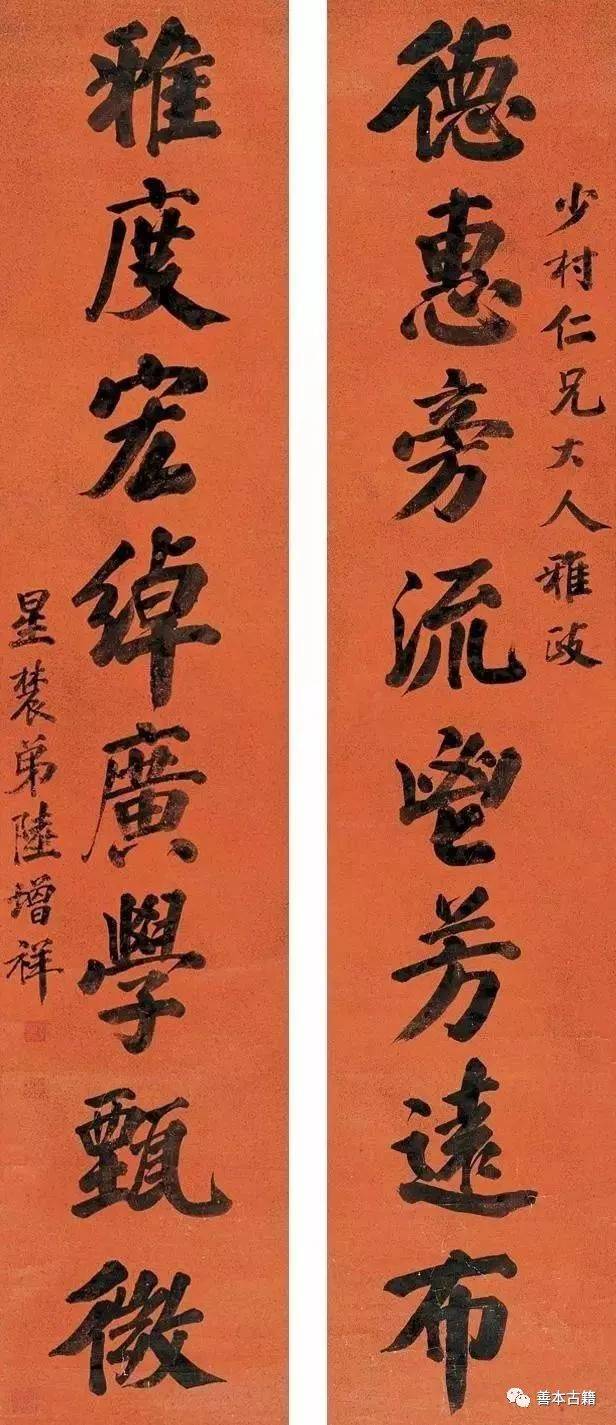 少村仁兄大人雅政
德惠旁流鬯芳遠布
雅度宏綽廣學甄微
星辳弟陸增祥
善本古籍